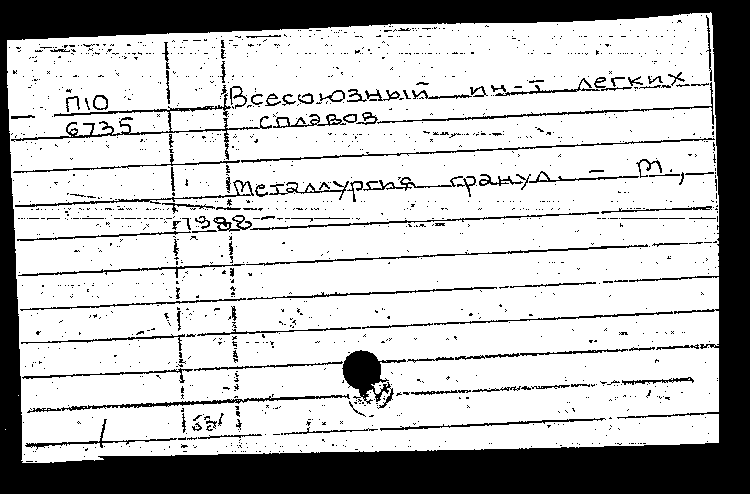 П10
6735
Всесоюзный ин-т легких
сплавов
Металлургия гранул. - М.,
1988 -